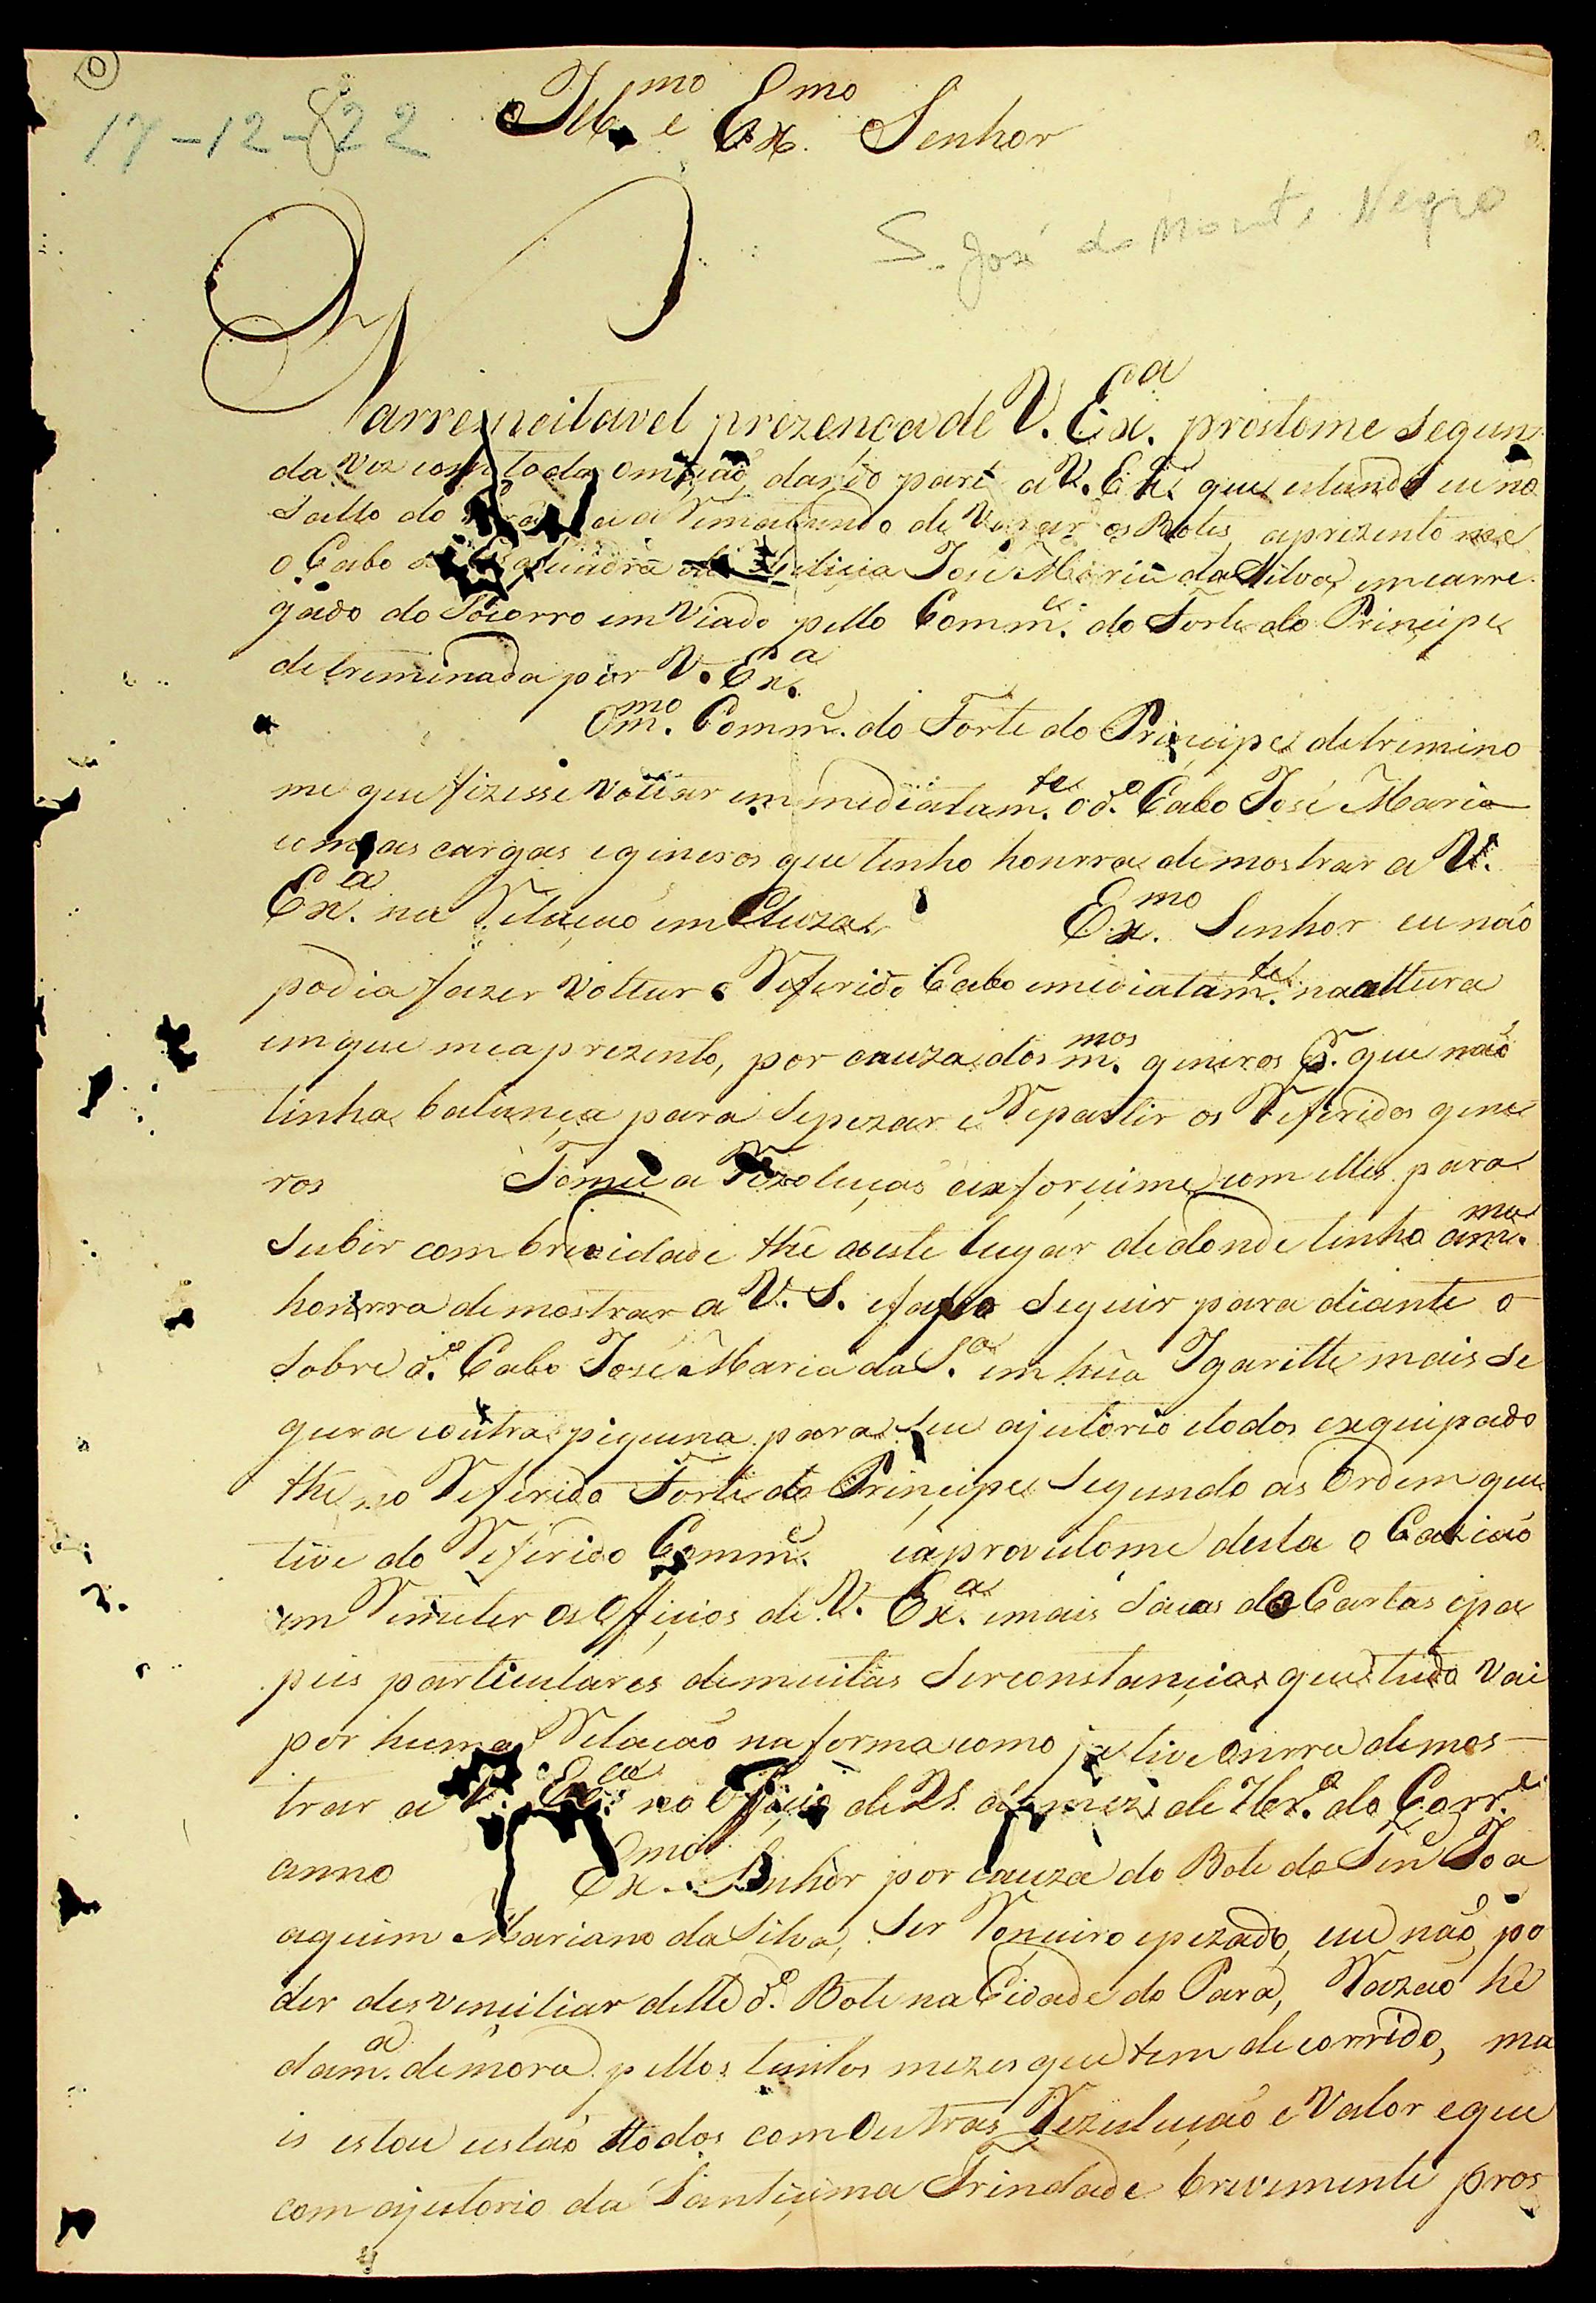 17-12-822
Ill.mo e Ex.mo Senhor
S. José do Monte Negro
Narrespeitavel prezença de V. Ex.a prostome segun
da vez com toda omição, dando parte a V. Ex.a que estando eu no
Salto do a Rematando de Varar os Botes aprezentome
o Cabo de Esquadra de Milicia José Maria da Silva, emcarre
gado do Socorro emviado pello Comm.e do Forte do Principe
detreminada por V. Ex.a
O m.mo Comm.e do Forte do Principe detremino
me que fizesse voltar emmediatam.te o d.o Cabo José Maria
com as cargas e generos que tenho honrra demostrar a V.
Ex.a na Relação em Cluza. Ex.mo Senhor eu não
podia fazer voltar o Referido Cabo emediatam.te na altura
em que me aprezento, por cauza dos m.mos generos P. que não
tinha balança para sepezar e Repartir os Referidos gene
ros Tomei a Rezolução eixforçime com elles para
subir com brevidade thé a este lugar dedonde tenho a m.ma
honrra demostrar a V. S. efaço seguir para diante o
sobre d.o Cabo José Maria da S.a em hũa Igaritte mais se
gura e outra piquena para seu ajutorio e todos exquipado
thé no Referido Forte do Principe segundo as Ordem que
tive do Referido Comm.e eaproveitome desta o Cazião
em Remeter os Officios de V. Ex.a emais sacas de Cartas epa
peis particulares demuitas serconstancias que tudo vai
por huma Relação na forma como ja tive onrra demos
trar a V. Ex.ca no Officio de 21 do mez de 7br.o do Corr.e
anno Ex.mo Senhor por cauza do Bote do Ten.e Joa
aquim Mariano da Silva, ser Ronceiro epezado, eu não po
der desvenciliar delle d.o Bote na Cidade do Pará, Razão hé
da m.a demora pellos tantos mezes que tem decorrido, ma
is estou estão ttodos com Outras Rezulução e Valor e que
com ajutorio da Santiçima Trindade brevemente pros